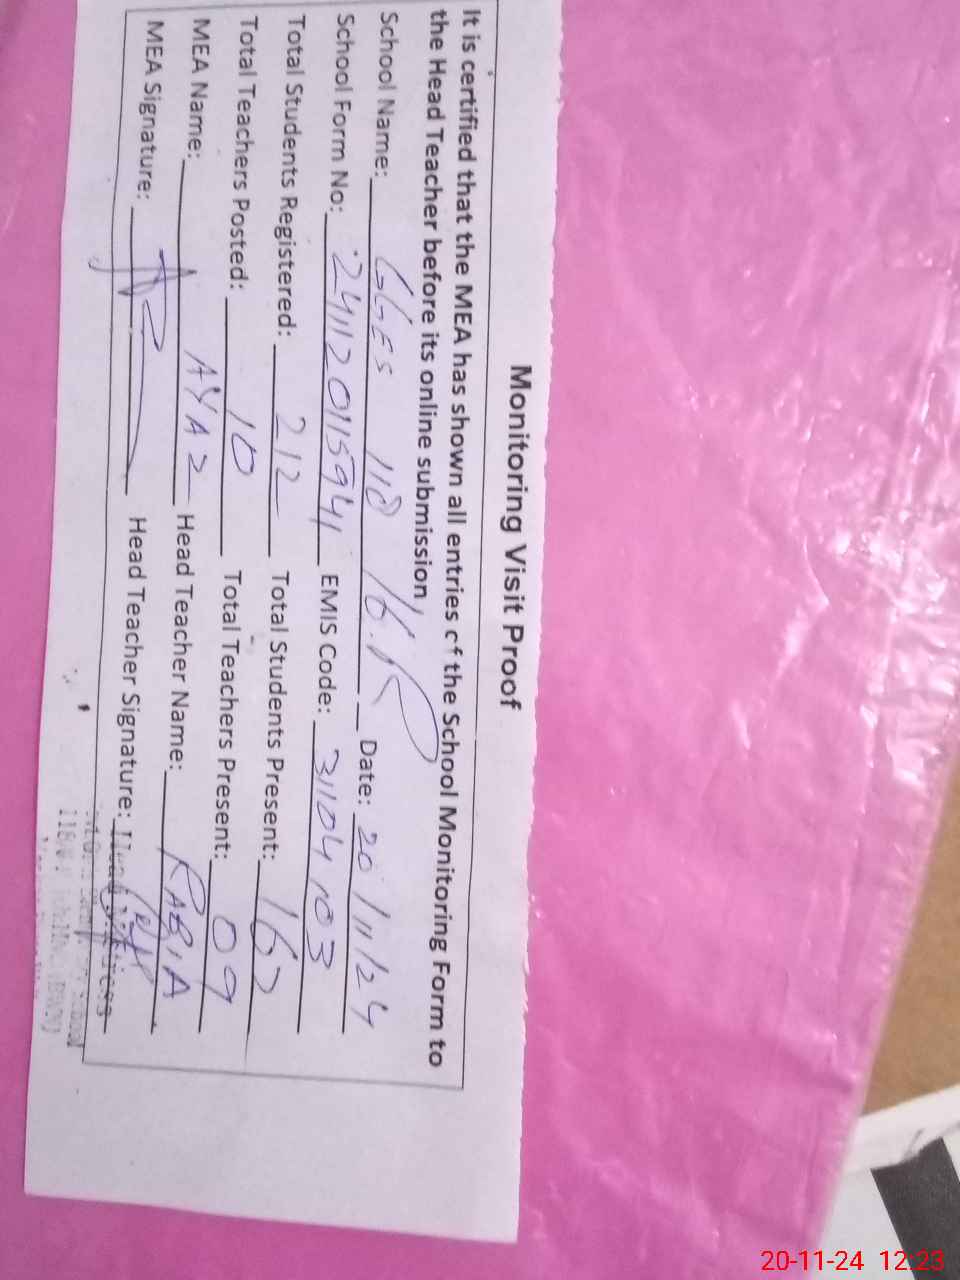 Monitoring Visit Proof
It is certified that the MEA has shown all entries of the School Monitoring Form to
the Head Teacher before its online submission
School Name: GGES 118 /6.R Date: 20/11/24
School Form No: 241120115941 EMIS Code: 31104103
Total Students Registered: 212 Total Students Present:
Total Teachers Posted: 10 Total Teachers Present: 09
MEA Name: AYAZ Head Teacher Name: RABIA
MEA Signature: Head Teacher Signature: Head Mistress
20-11-24 12:23